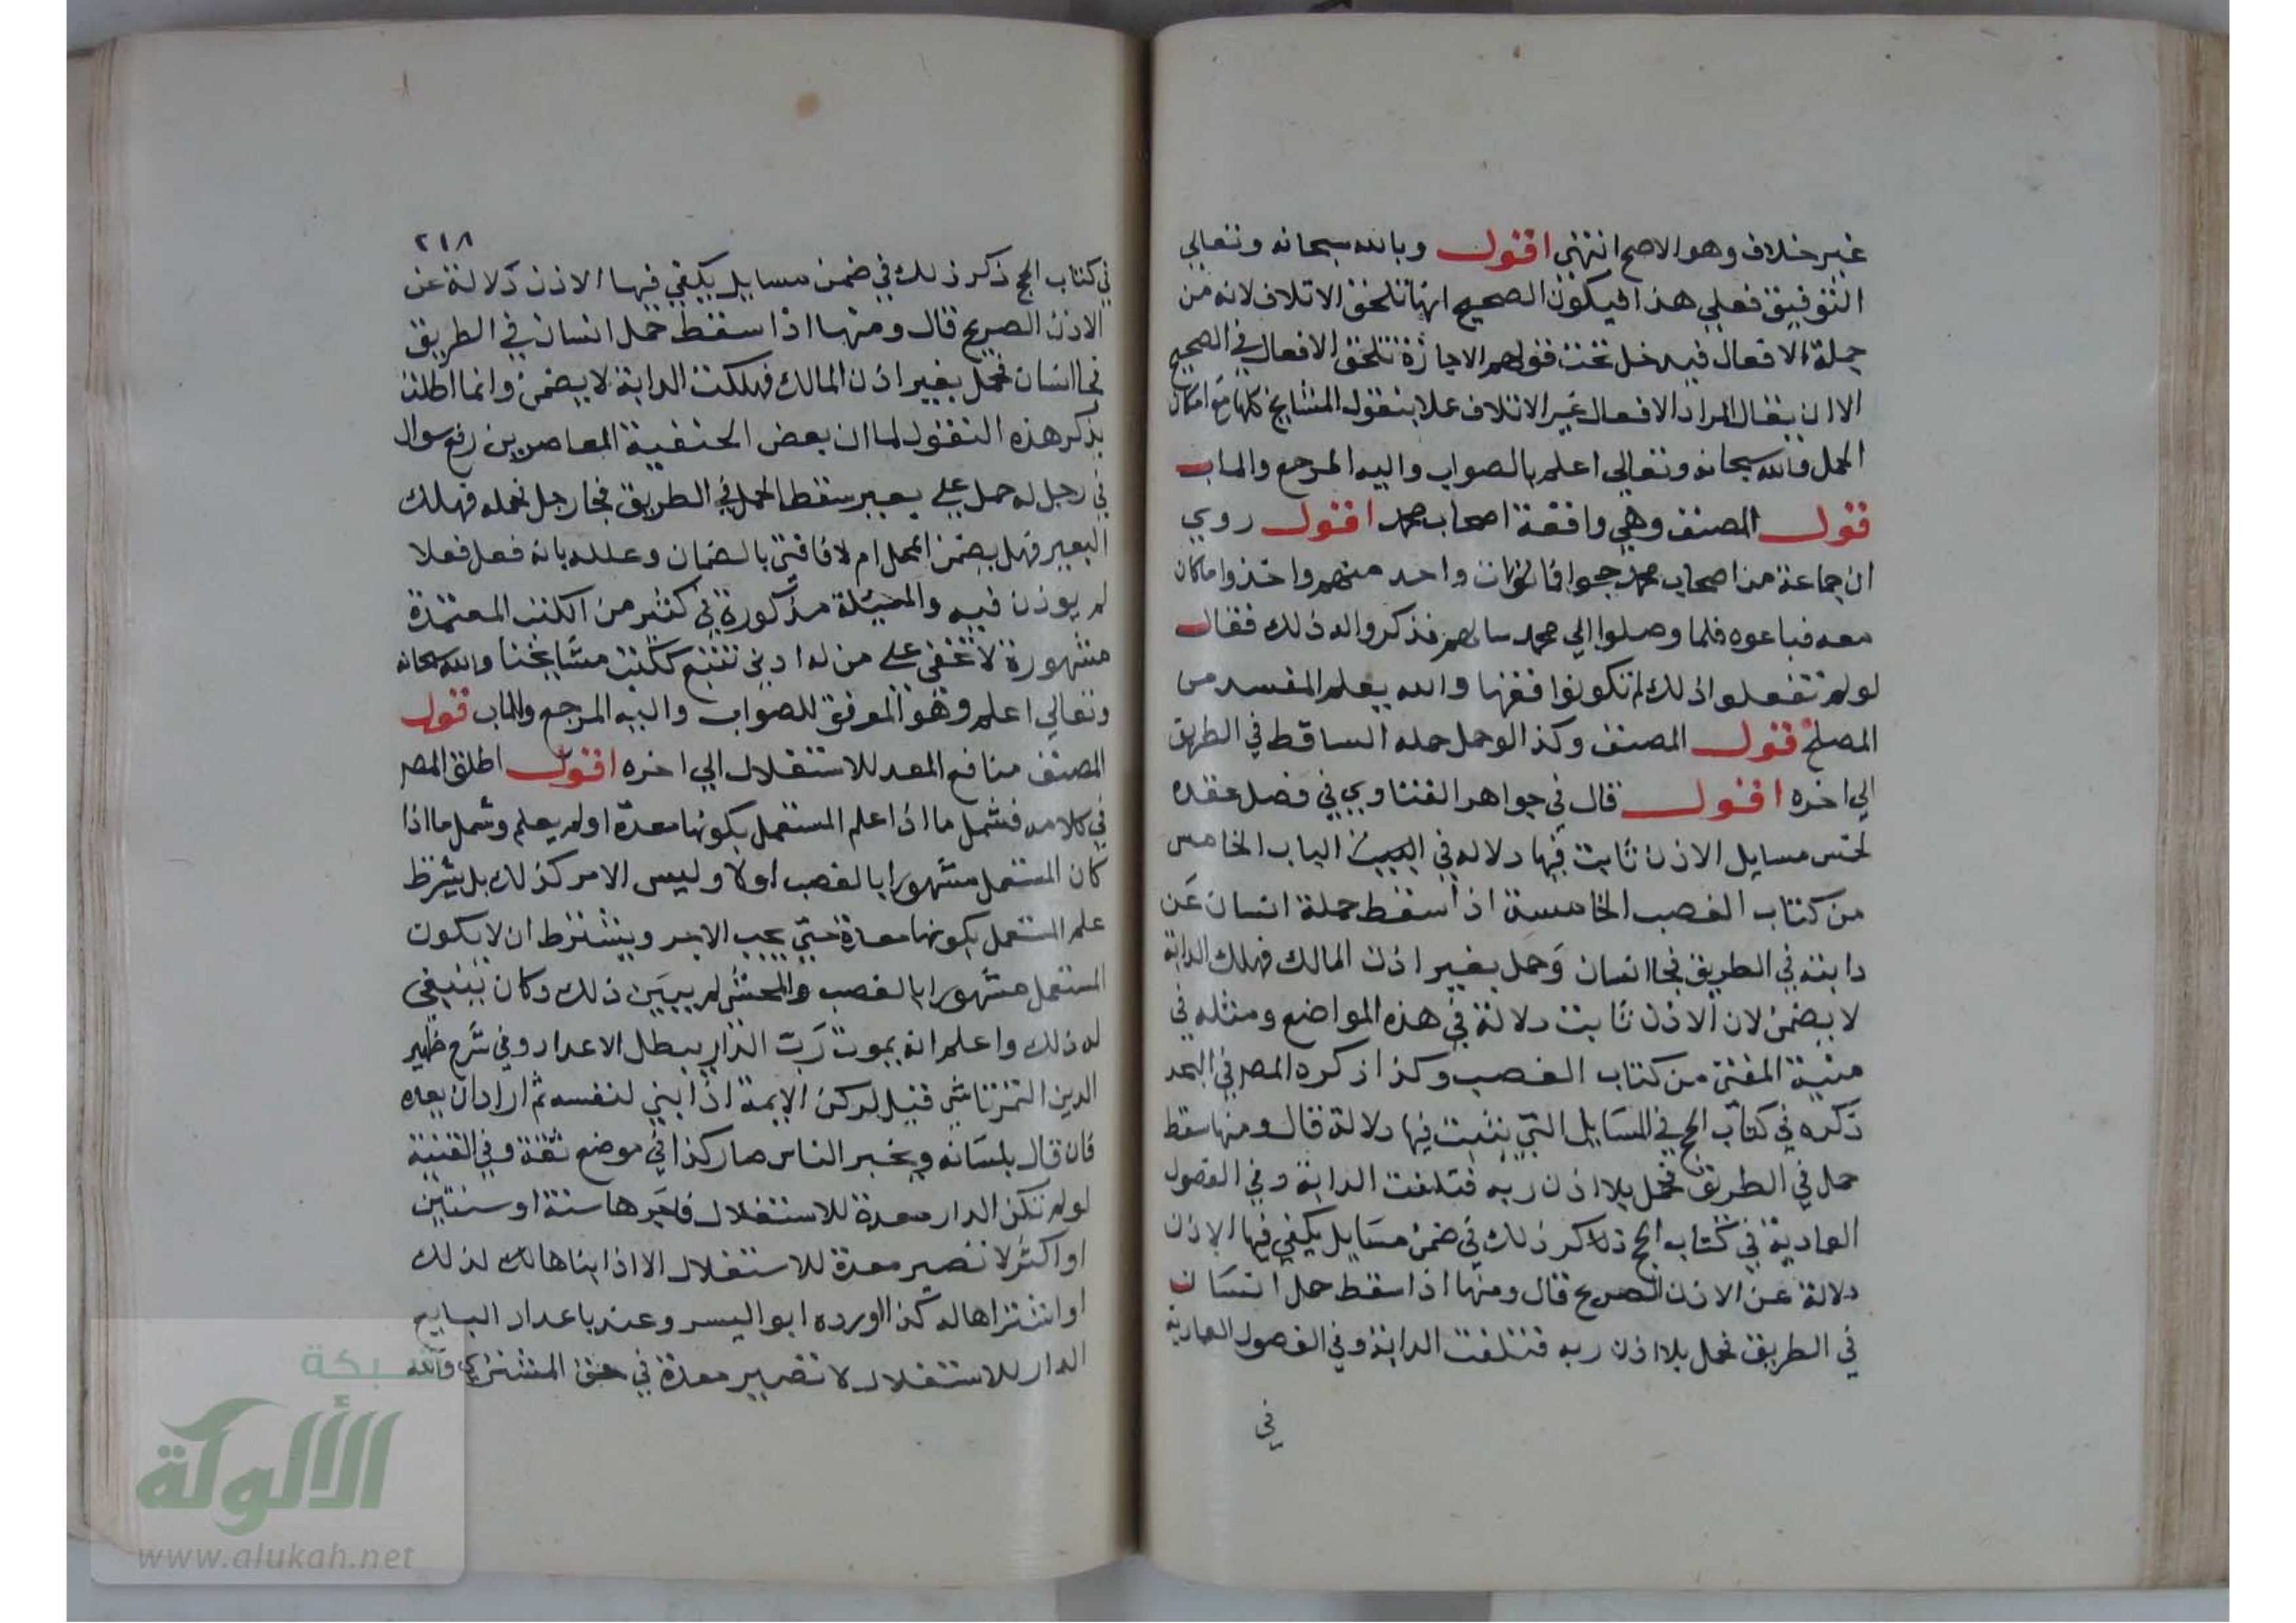 غير خلاف وهو الاصح انتهي اقول وبالله سبحانه وتعالي
التوفيق فعلي هذا فيكون الصحيح انها تلحق الاتلاف لانه من
جملة الافعال فيدخل تحت قولهم الاجازة تلحق الافعال في الصحيح
الا ان يقال المراد الافعال غير الاتلاف عملا بنقول المشايخ كلها مع امكان
الحمل والله سبحانه وتعالي اعلم بالصواب واليه المرجع والماب
قول المصنف وهي واقعة اصحاب محمد اقول روي
ان جماعة من اصحاب محمد حجوا فمات واحد منهم واخذوا ما كان
معه فباعوه فلما وصلوا الي محمد سالهم فذكروا له ذلك فقال
لو لم تفعلوا ذلك لم تكونوا فقها والله يعلم المفسد من
المصلح قول المصنف وكذا لو حمل حمله الساقط في الطريق
الي اخره اقول قال في جواهر الفتاوي في فصل عقده
لخمس مسايل الاذن ثابت فيها دلالة في الباب الخامس
من كتاب الغصب الخامسة اذا سقط حملة انسان عن
دابته في الطريق فجا انسان وحمل بغير اذن المالك فهلك الدابة
لا يضمن لان الاذن ثابت دلالة في هذه المواضع ومثله في
منية المفتي من كتاب الغصب وكذا ذكره المصر في البحر
ذكره في كتاب الحج في المسايل التي يثبت فيها دلالة قال ومنها سقط
حمل في الطريق فحمل بلا اذن ربه فتلفت الدابة وفي الفصول
العمادية في كتاب الحج ذكر ذلك في ضمن مسايل يكفي فيها الاذن
دلالة عن الاذن الصريح قال ومنها اذا سقط حمل انسان
في الطريق فحمل بلا اذن ربه فتلفت الدابة وفي الفصول العمادية
في
٢١٨
في كتاب الحج ذكر ذلك في ضمن مسايل يكفي فيها الاذن دلالة عن
الاذن الصريح قال ومنها اذا سقط حمل انسان في الطريق
فجا انسان فحمل بغير اذن المالك فهلكت الدابة لا يضمن وانما اطلت
بذكر هذه النقول لما ان بعض الحنفية المعاصرين رفع سوال
في رجل له حمل علي بعير سقط الحمل في الطريق فجا رجل فحمله فهلك
البعير فهل يضمن المحمل ام لا فافتي بالضمان وعلله بانه فعل فعلا
لم يوذن فيه والمسئلة مذكورة في كثير من الكتب المعتمدة
مشهورة لا تخفي علي من له ادني تتبع لكتب مشايخنا والله سبحانه
وتعالي اعلم وهو الموفق للصواب واليه المرجع والماب قول
المصنف منافع المعد للاستغلال الي اخره اقول اطلق المصر
في كلامه فشمل ما اذا علم المستعمل بكونها معدة او لم يعلم وشمل ما اذا
كان المستعمل مشهورا بالغصب اولا وليس الامر كذلك بل يشترط
علم المستعمل بكونها معدة حتي يجب الاجر ويشترط ان لا يكون
المستعمل مشهورا بالغصب والمحشي لم يبين ذلك وكان ينبغي
له ذلك واعلم انه بموت رب الدار يبطل الاعداد وفي شرح ظهير
الدين التمرتاشي قيل لركن الايمة اذا بني لنفسه ثم اراد ان يعده
فان قال بلسانه ويخبر الناس صار كذا في موضع ثقة وفي القنية
لو لم تكن الدار معدة للاستغلال فاجرها سنة او سنتين
او اكثر لا تصير معدة للاستغلال الا اذا بناها لك لذلك
او اشتراها له كذا اورده ابو اليسر وعند باعداد البايع
الدار للاستغلال لا تصير معدة في حق المشتري والله
شبكة
الألوكة
www.alukah.net